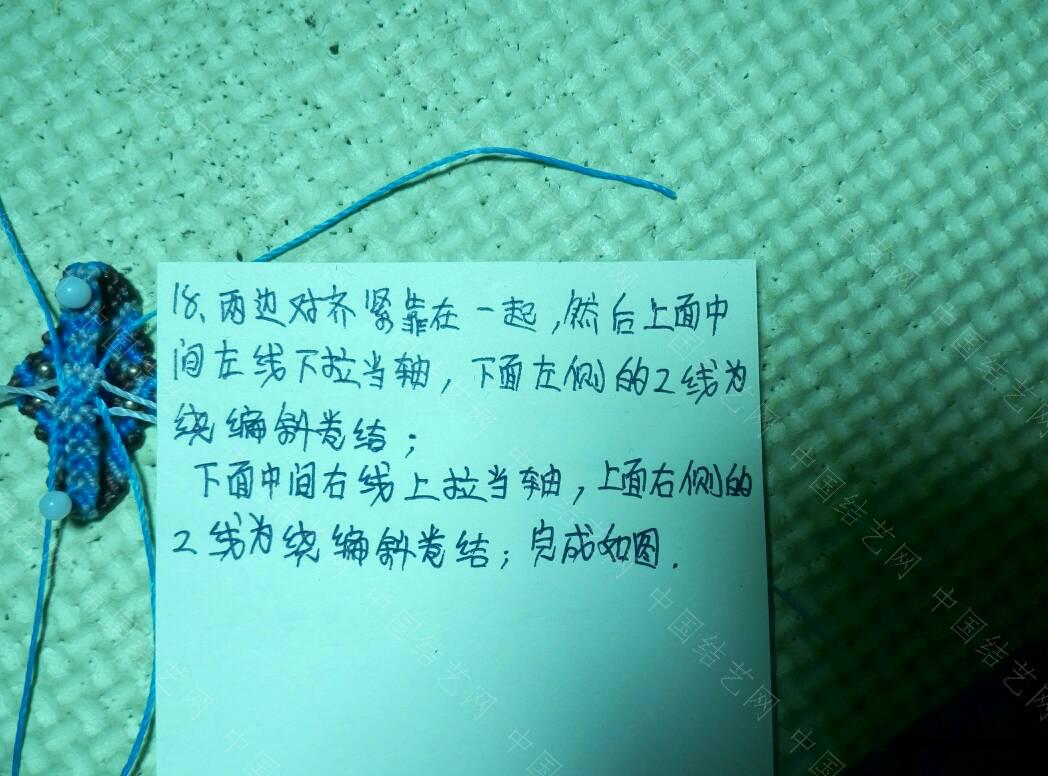 18、两边对齐紧靠在一起,然后上面中
间左线下拉当轴,下面左侧的2线为
绕编斜卷结;
下面中间右线上拉当轴,上面右侧的
2线为绕编斜卷结;完成如图.
中国结艺网